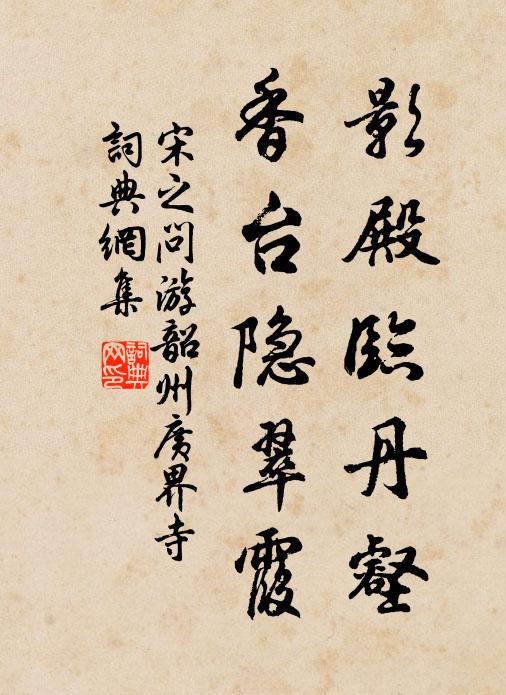 影殿臨丹壑
香台隐翠霞
宋之问游韶州廣界寺
詞典網集
詞典網印